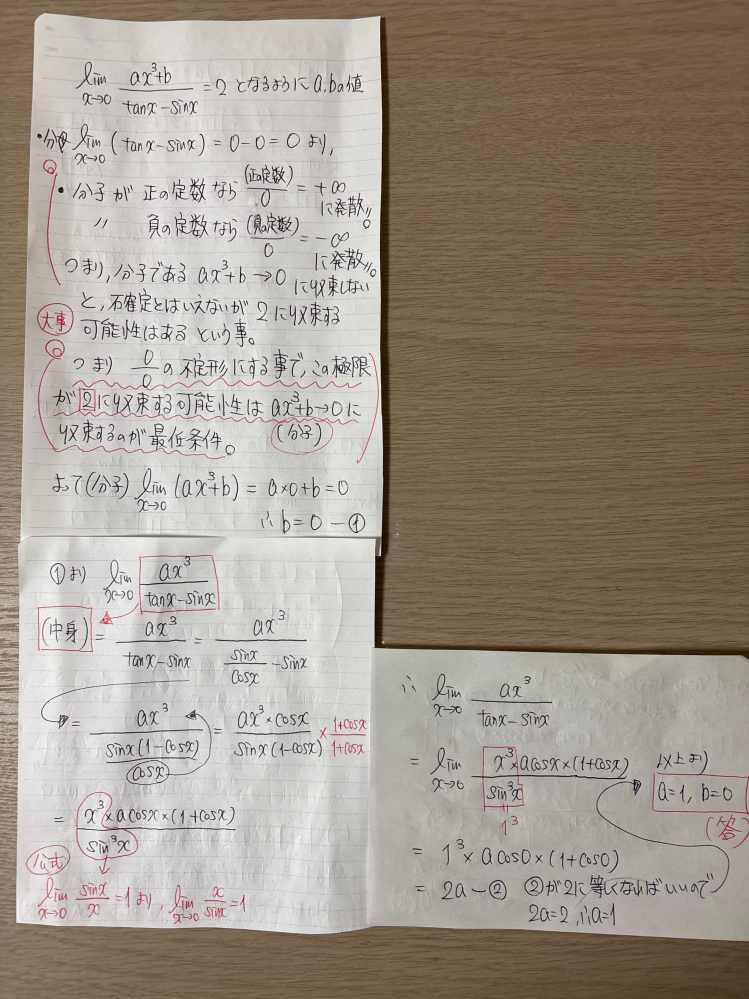 lim x→0 (ax³+b)/(tanx−sinx) = 2 となるように a, bの値
・分母 lim x→0 (tanx−sinx) = 0−0 = 0 より,
・分子が 正の定数なら (正の定数)/0 = +∞ に発散。
〃 負の定数なら (負の定数)/0 = −∞ に発散。
つまり,分子である ax³+b → 0 に収束しない
と,不確定とはいえないが 2 に収束する
大事
可能性はあるという事。
つまり 0/0 の不定形にする事で,この極限
が 2 に収束する可能性は ax³+b→0 に
(分子)
収束するのが最低条件。
よって(分子) lim x→0 (ax³+b) = a×0+b = 0
∴ b = 0 ー ①
①より lim x→0 ax³/(tanx−sinx)
(中身) = ax³/(tanx−sinx) = ax³/(sinx/cosx −sinx)
= ax³/(sinx(1−cosx)/cosx) = ax³×cosx/(sinx(1−cosx)) × (1+cosx)/(1+cosx)
= x³×acosx×(1+cosx)/sin³x
公式
lim x→0 sinx/x = 1 より, lim x→0 x/sinx = 1
∴ lim x→0 ax³/(tanx−sinx)
= lim x→0 x³×acosx×(1+cosx)/sin³x
1³
= 1³×acos0×(1+cos0)
= 2a ー ② ②が2に等しくなればいいので
2a=2, ∴a=1
以上より
a=1, b=0
(答)